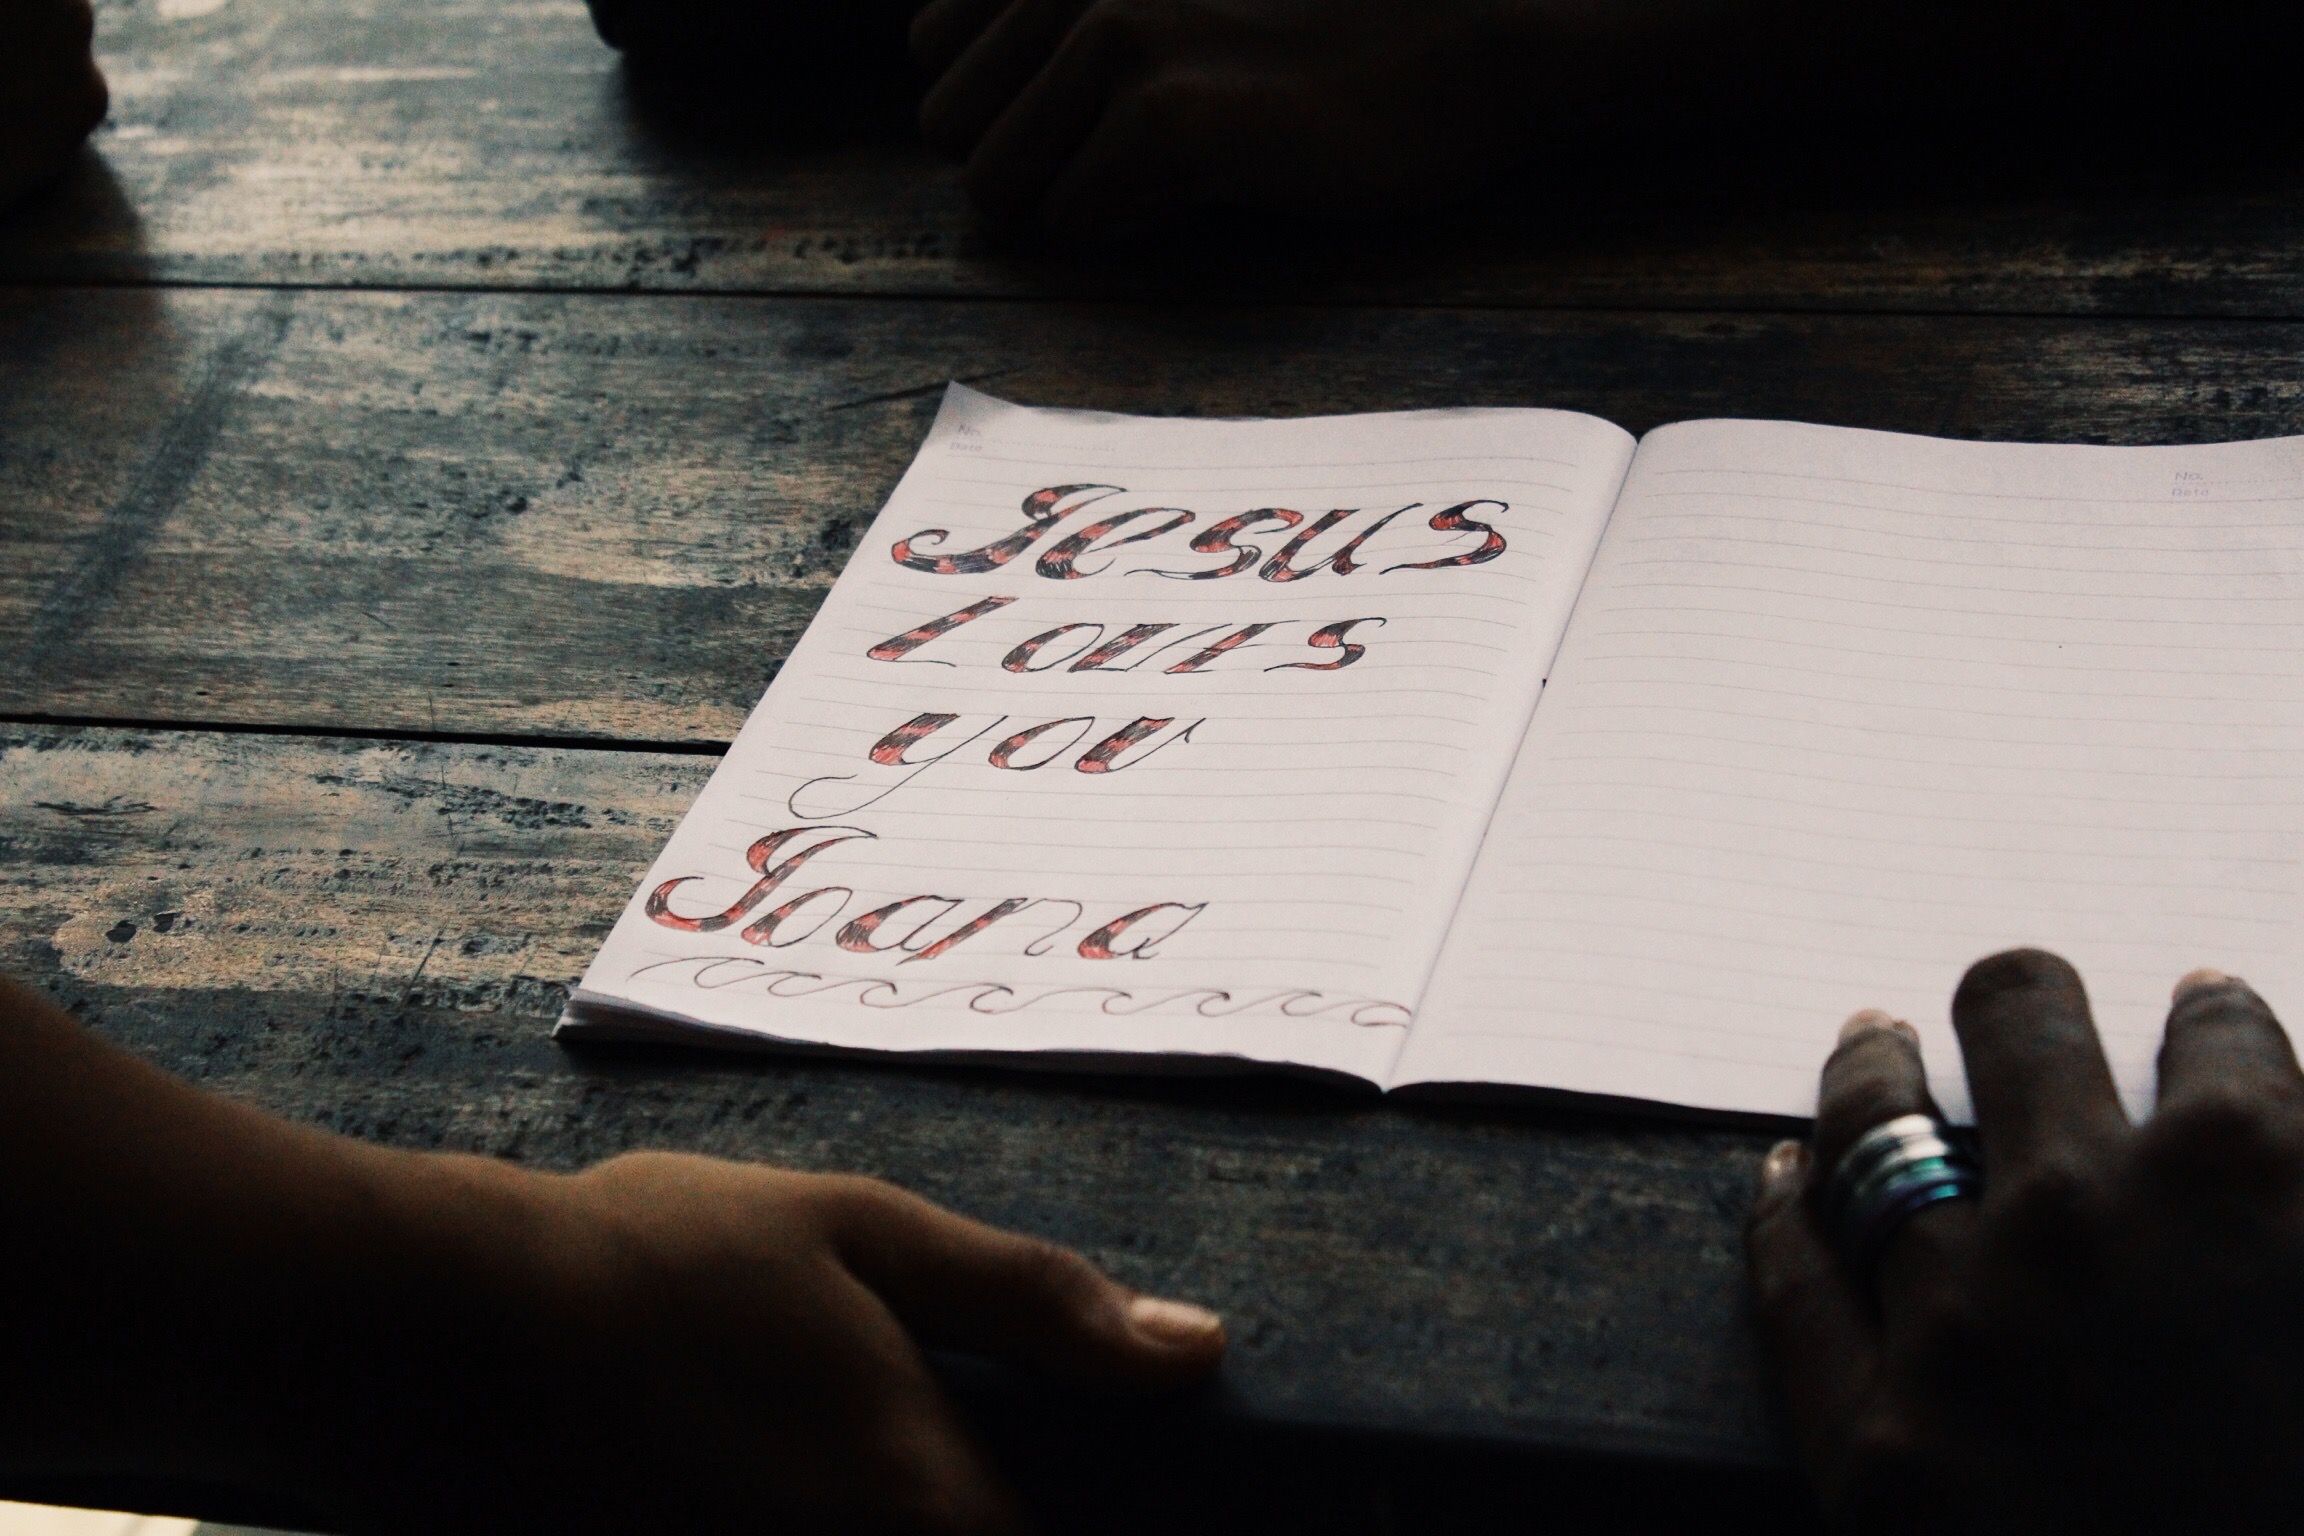 No.
Date
Jesus
Loves
you
Joana
No.
Date